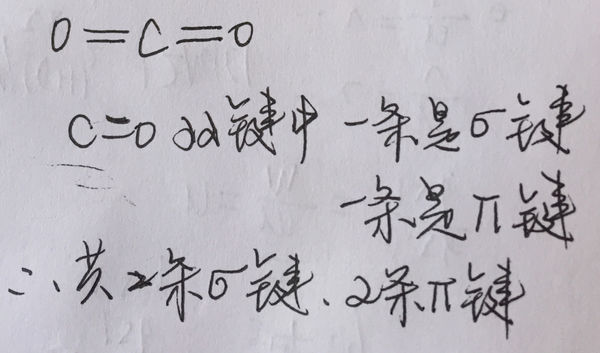 O=C=O
C=O 双键中 一条是σ键
一条是π键
∴共2条σ键、2条π键